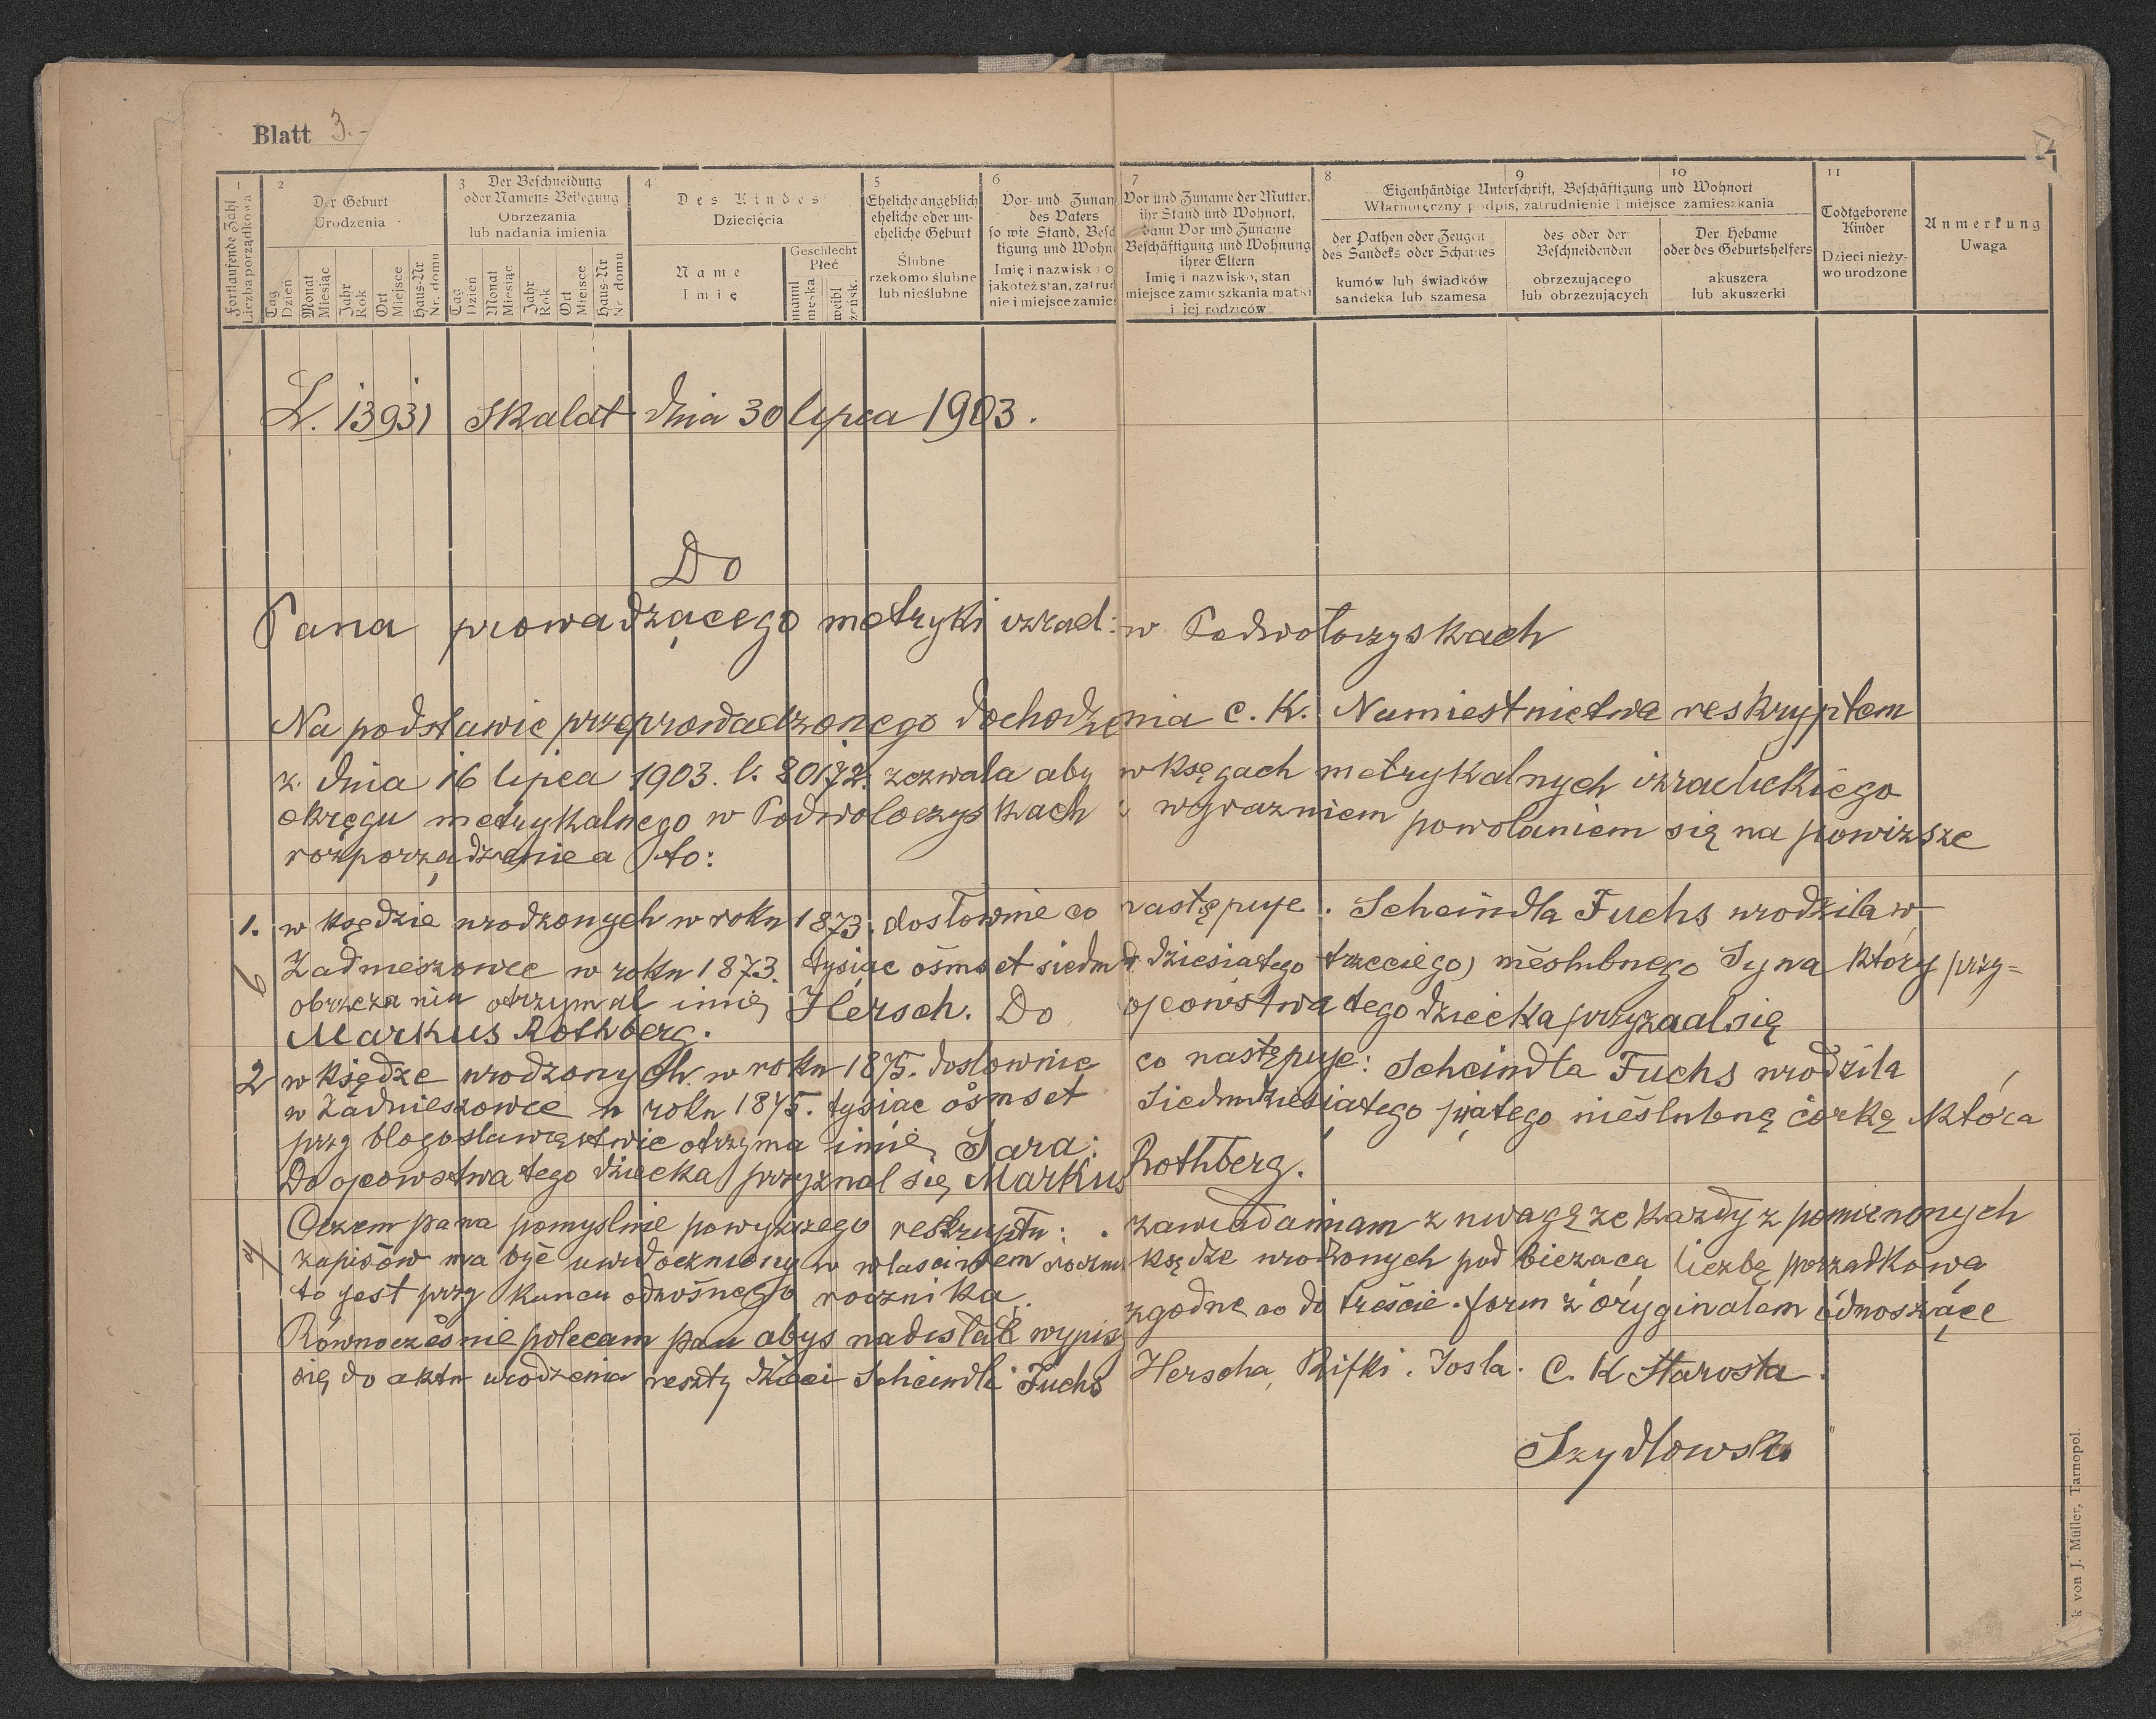 Blatt 3.-
1
Fortlaufende Zahl
Liczba porządkowa
2
Der Geburt
Urodzenia
Tag
Dzień
Monat
Miesiąc
Jahr
Rok
Ort
Miejsce
Haus-Nr
Nr. domu
3
Der Beschneidung
oder Namens Beilegung
Obrzezania
lub nadania imienia
Tag
Dzień
Monat
Miesiąc
Jahr
Rok
Ort
Miejsce
Haus-Nr
Nr. domu
4
Des Kindes
Dziecięcia
Name
Imię
Geschlecht
Płeć
männl
męska
weibl
żeńsk.
5
Eheliche angeblich
eheliche oder un-
eheliche Geburt
Ślubne
rzekomo ślubne
lub nieślubne
6
Vor- und Zunam
des Vaters
so wie Stand, Besch
tigung und Wohn
Imię i nazwisko o
jakoteż stan, zatrud
nie i miejsce zamies
7
Vor und Zuname der Mutter,
ihr Stand und Wohnort,
dann Vor und Zuname
Beschäftigung und Wohnung
ihrer Eltern
Imię i nazwisko, stan
miejsce zamieszkania matki
i jej rodziców
8
9
10
Eigenhändige Unterschrift, Beschäftigung und Wohnort
Własnoręczny podpis, zatrudnienie i miejsce zamieszkania
der Pathen oder Zeugen
des Sandeks oder Schames
kumów lub świadków
sandeka lub szamesa
des oder der
Beschneidenden
obrzezującego
lub obrzezujących
Der Hebame
oder des Geburtshelfers
akuszera
lub akuszerki
11
Todtgeborene
Kinder
Dzieci nieży-
wo urodzone
Anmerkung
Uwaga
L. 13931 Skalat dnia 30 lipca 1903.
Do
Pana prowadzącego metryki izrael: w Podwołoczyskach
Na podstawie przeprowadzonego dochodzenia c. K. Namiestnictwa reskryptem
z dnia 16 lipca 1903. l. 80172. zezwala aby w księgach metrykalnych izraelickiego
okręgu metrykalnego w Podwoloczyskach z wyrazniem powolaniem się na powizsze
rozporządzenie a to:
1. w ksędzie urodzonych w roku 1873. dosłownie co następuje. Scheindla Fuchs urodzila w
Zadnieszowce w roku 1873. tysiąc ośmset siedmdziesiatego trzeciego) nieslubnego Syna który przy=
obrzezaniu otrzymal imię Hersch. Do ojcowstwa tego dziecka przyznal się
Markus Rothberg.
2 w księdze urodzonych w roku 1875. doslownie co następuje: Scheindla Fuchs urodzila
w Zadnieszowce w roku 1875. tysiac ośmset Siedmdziesiatego piątego nieślubną córkę która
przy blogoslawieństwie otrzyma imię Sara:
Do ojcowstwa tego dziecka przyznal się Markus Rothberg.
Oczem pana pomyslnie powyzszego reskryptu: zawiadamiam z uwagą ze kazdy z pomienonych
zapisów ma być uwidoczniony w wlasciwem roczni ksędze urodzonych pod biezacą liczbą porzadkową
to jest przy koncu odnośnego rocznika.
Rownocześnie polecam pan abys nadeslał wypisy zgodne co do treście. form z oryginalem odnoszące
się do aktu urodzenia reszty dzieci Scheindli Fuchs Herscha, Rifki. Josla. C. K Starosta.
Szydlowski
k von J. Müller, Tarnopol.